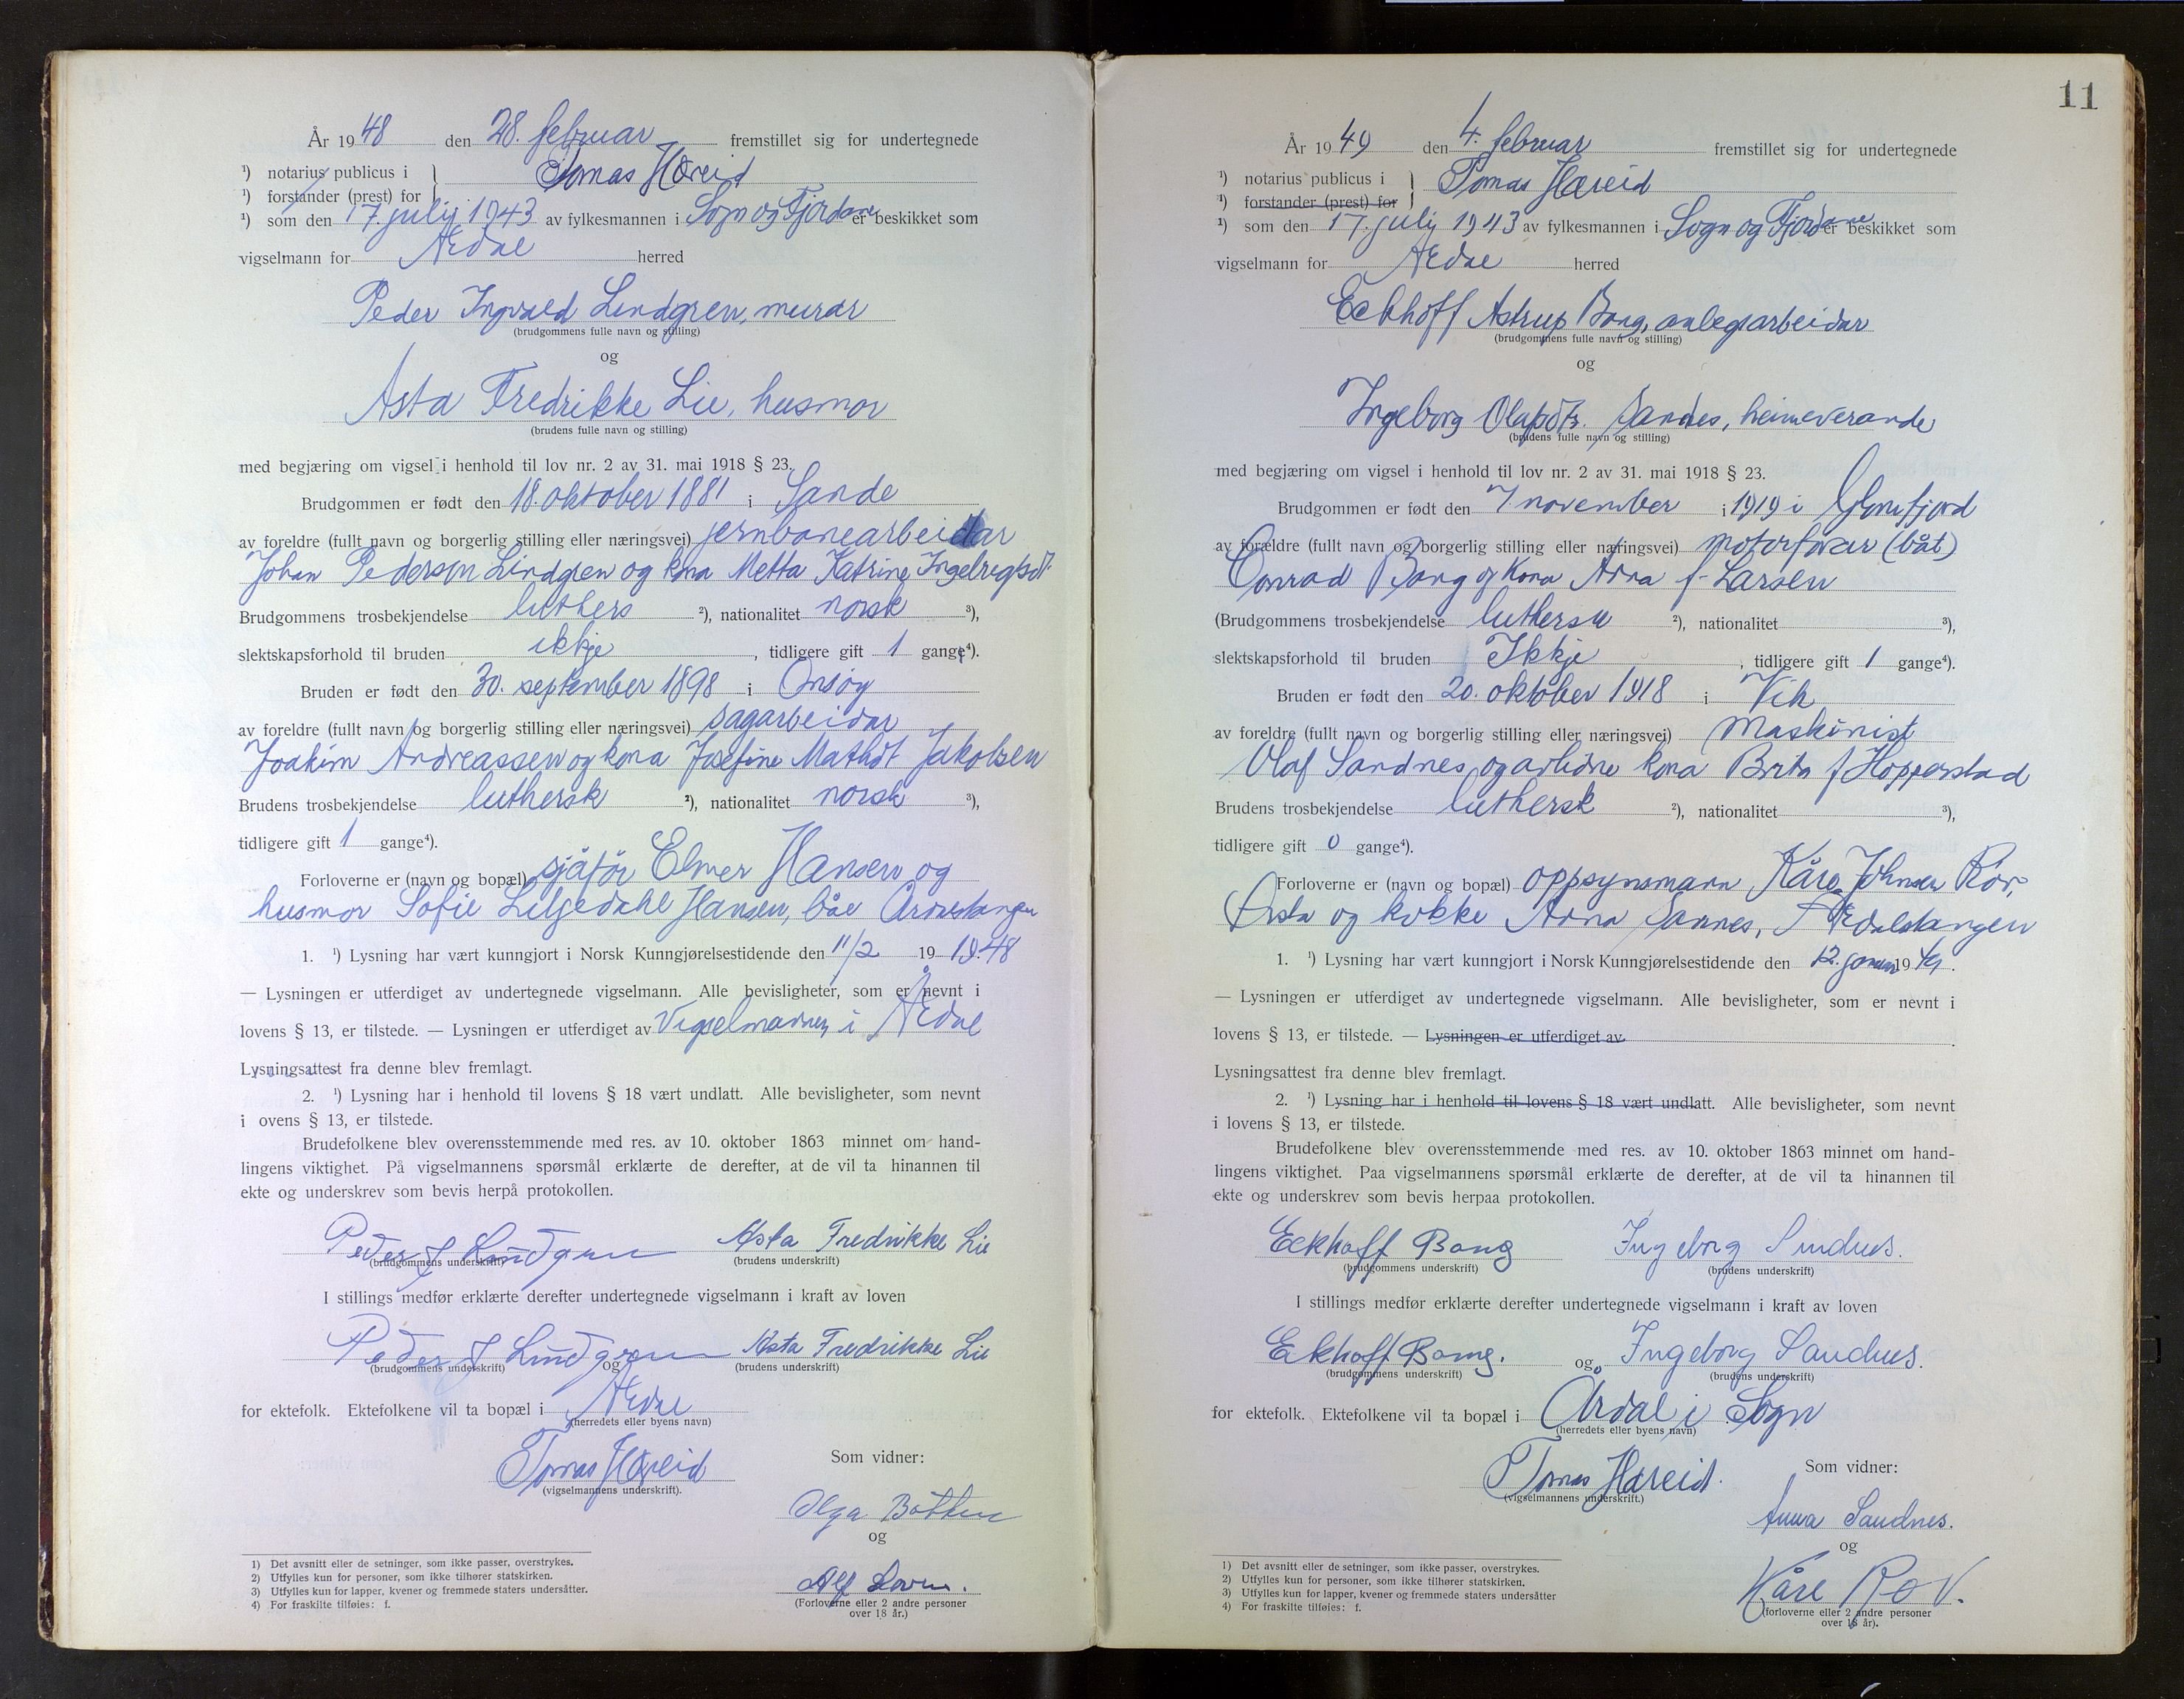 År 1948 den 28. februar fremstillet sig for undertegnede
¹) notarius publicus i } Tomas Hæreid
¹) forstander (prest) for
¹) som den 17. july 1943 av fylkesmannen i Sogn og Fjordane er beskikket som
vigselmann for Årdal herred
Peder Ingvald Lindgren, murar
(brudgommens fulle navn og stilling)
og
Asta Fredrikke Lie, husmor
(brudens fulle navn og stilling)
med begjæring om vigsel i henhold til lov nr. 2 av 31. mai 1918 § 23.
Brudgommen er født den 18. oktober 1881 i Sande
av foreldre (fullt navn og borgerlig stilling eller næringsvei) jernbanearbeidar
Johan Pederson Lindgren og kona Metta Katrine
Brudgommens trosbekjendelse luthers ²), nationalitet norsk ³),
slektskapsforhold til bruden ikkje , tidligere gift 1 gange⁴).
Bruden er født den 30. september 1898 i Onsøy
av foreldre (fullt navn og borgerlig stilling eller næringsvei) sagarbeidar
Joakim Andreassen og kona Josefine Jakobsen
Brudens trosbekjendelse luthersk ²), nationalitet norsk ³),
tidligere gift 1 gange⁴).
Forloverne er (navn og bopæl) sjåfør Elmer Hansen og
husmor Sofie Liljedahl Hansen, båe Årdalstangen
1. ¹) Lysning har vært kunngjort i Norsk Kunngjørelsestidende den 11/2 19 1948
— Lysningen er utferdiget av undertegnede vigselmann. Alle bevisligheter, som er nevnt i
lovens § 13, er tilstede. — Lysningen er utferdiget av Vigselmannen i Årdal
Lysningsattest fra denne blev fremlagt.
2. ¹) Lysning har i henhold til lovens § 18 vært undlatt. Alle bevisligheter, som nevnt
i ovens § 13, er tilstede.
Brudefolkene blev overensstemmende med res. av 10. oktober 1863 minnet om hand-
lingens viktighet. På vigselmannens spørsmål erklærte de derefter, at de vil ta hinannen til
ekte og underskrev som bevis herpå protokollen.
Peder J Lindgren Asta Fredrikke Lie
(brudgommens underskrift) (brudens underskrift)
I stillings medfør erklærte derefter undertegnede vigselmann i kraft av loven
Peder J Lindgren og Asta Fredrikke Lie
(brudgommens underskrift) (brudens underskrift)
for ektefolk. Ektefolkene vil ta bopæl i Årdal
(herredets eller byens navn)
Tomas Hæreid Som vidner:
(vigselmannens underskrift).
Olga
og
Alf
(Forloverne eller 2 andre personer
over 18 år.)
1) Det avsnitt eller de setninger, som ikke passer, overstrykes.
2) Utfylles kun for personer, som ikke tilhører statskirken.
3) Utfylles kun for lapper, kvener og fremmede staters undersåtter.
4) For fraskilte tilføies: f.
11
År 1949 den 4. februar fremstillet sig for undertegnede
¹) notarius publicus i } Tomas Hæreid
¹) forstander (prest) for
¹) som den 17. july 1943 av fylkesmannen i Sogn og Fjordane er beskikket som
vigselmann for Årdal herred
Eckhoff Astrup Bang, anlegsarbeidar
(brudgommens fulle navn og stilling)
og
Ingeborg Olafsdtr. Sandnes, heimeverande
(brudens fulle navn og stilling)
med begjæring om vigsel i henhold til lov nr. 2 av 31. mai 1918 § 23.
Brudgommen er født den 7 november i 1919 i Glomfjord
av forældre (fullt navn og borgerlig stilling eller næringsvei) motorførar (båt)
Conrad Bang og kona Anna f. Larsen
(Brudgommens trosbekjendelse luthersk ²), nationalitet ³),
slektskapsforhold til bruden Ikkje , tidligere gift 1 gange⁴).
Bruden er født den 20. oktober 1918 i Vik
av foreldre (fullt navn og borgerlig stilling eller næringsvei) Maskinist
Olaf Sandnes og avlidne kona Brita f Hopperstad
Brudens trosbekjendelse luthersk ²), nationalitet ³),
tidligere gift 0 gange⁴).
Forloverne er (navn og bopæl) oppsynsmann Kåre Johnsen Rov,
Ørsta og kokke Anna Sannes, Årdalstangen
1. ¹) Lysning har vært kunngjort i Norsk Kunngjørelsestidende den 12. januar 1949.
— Lysningen er utferdiget av undertegnede vigselmann. Alle bevisligheter, som er nevnt i
lovens § 13, er tilstede. — Lysningen er utferdiget av .
Lysningsattest fra denne blev fremlagt.
2. ¹) Lysning har i henhold til lovens § 18 vært undlatt. Alle bevisligheter, som nevnt
i lovens § 13, er tilstede.
Brudefolkene blev overensstemmende med res. av 10. oktober 1863 minnet om hand-
lingens viktighet. Paa vigselmannens spørsmål erklærte de derefter, at de vil ta hinannen til
ekte og underskrev som bevis herpaa protokollen.
Eckhoff Bang Ingeborg Sandnes.
(brudgommens underskrift) (brudens underskrift)
I stillings medfør erklærte derefter undertegnede vigselmann i kraft av loven
Eckhoff Bang. og Ingeborg Sandnes.
(brudgommens underskrift) (brudens underskrift)
for ektefolk. Ektefolkene vil ta bopæl i Årdal i Sogn
(herredets eller byens navn)
Tomas Hæreid. Som vidner:
(vigselmannens underskrift.)
Anna Sandnes.
og
Kåre Rov.
(forloverne eller 2 andre personer
over 18 år).
1) Det avsnitt eller de setninger, som ikke passer, overstrykes.
2) Utfylles kun for personer, som ikke tilhører statskirken.
3) Utfylles kun for lapper, kvener og fremmede staters undersåtter
4) For fraskilte tilføies: f.